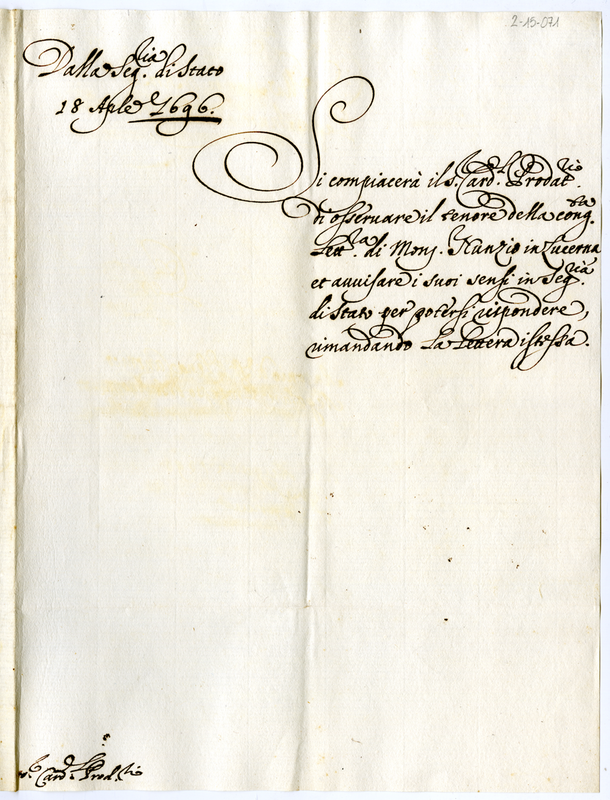 2-15-071
Dalla Seg.ria di Stato
18 Aple 1696.
Si compiacerà il S. Card.l Prodat.rio
di osservare il tenore della cong.ta
Lett.ra di Mons. Nunzio in Lucerna
et avvisare i suoi sensi in Seg.ria
di Stato per potersi rispondere,
rimandando la Lettera istessa.
S. Card.l Prod.rio